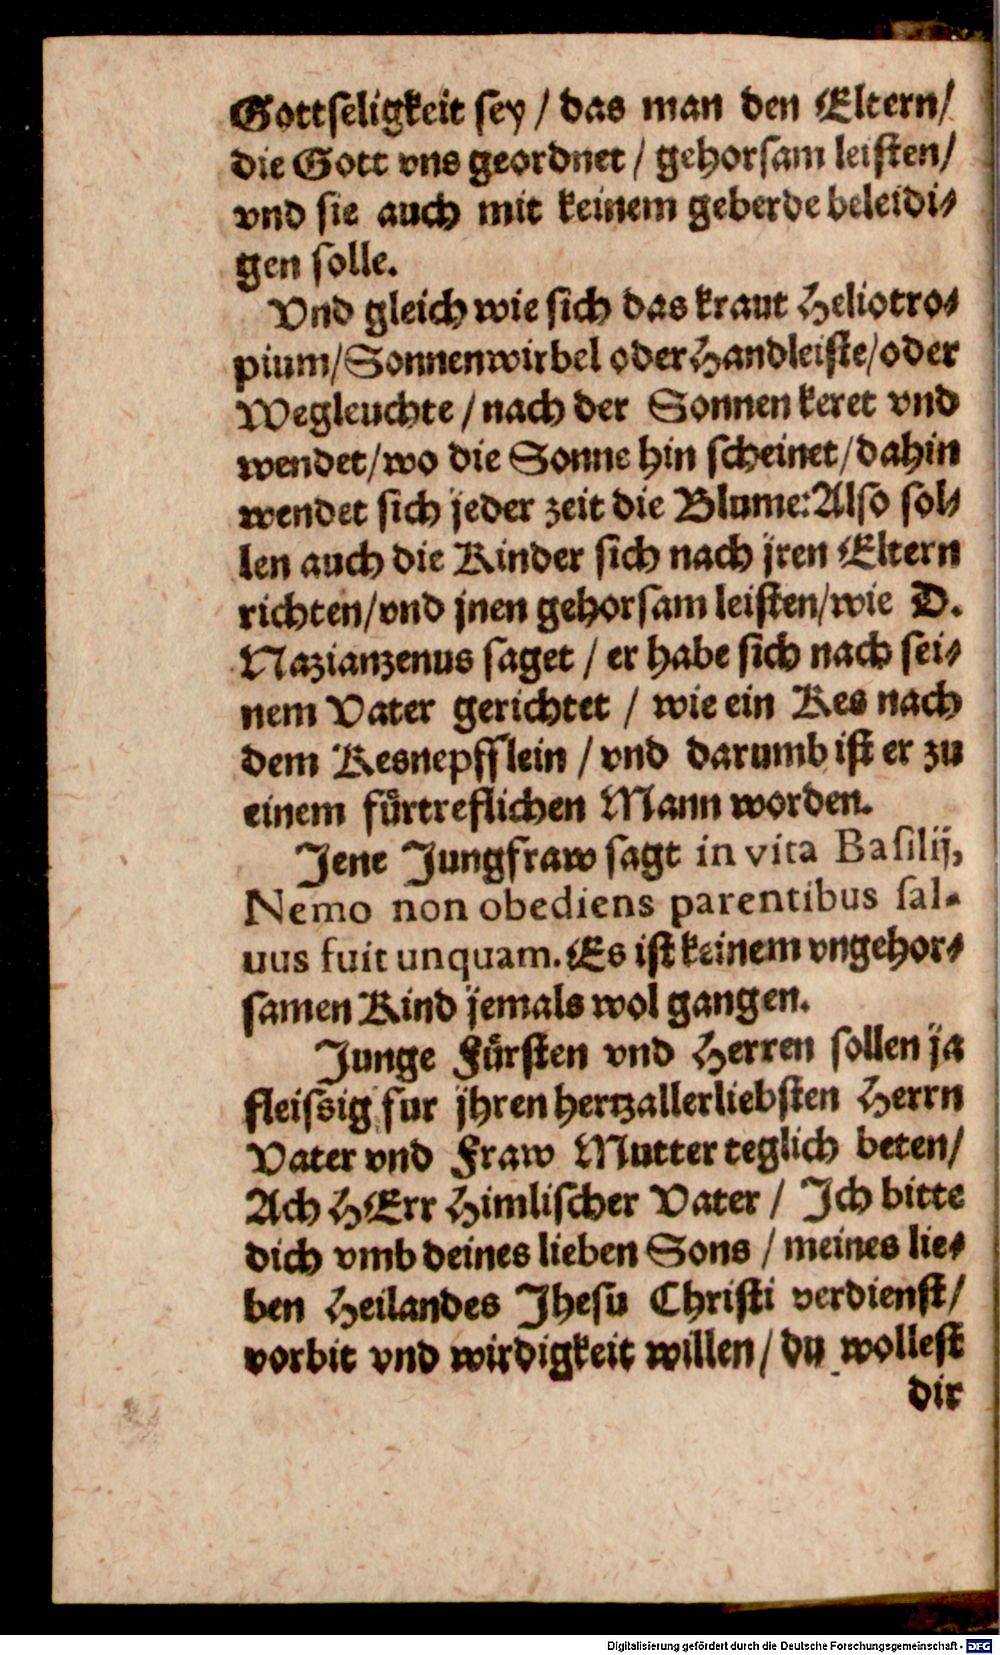 Gottseligkeit sey / das man den Eltern/
die Gott vns geordnet / gehorsam leisten/
vnd sie auch mit keinem geberde beleidi⸗
gen solle.
Vnd gleich wie sich das kraut Heliotro⸗
pium/Sonnenwirbel oder Handleiste/oder
Wegleuchte / nach der Sonnen keret vnd
wendet/wo die Sonne hin scheinet/dahin
wendet sich jeder zeit die Blume: Also sol⸗
len auch die Kinder sich nach jren Eltern
richten/vnd jnen gehorsam leisten/wie D.
Nazianzenus saget / er habe sich nach sei⸗
nem Vater gerichtet / wie ein Kes nach
dem Kesnepfflein / vnd darumb ist er zu
einem fürtreflichen Mann worden.
Jene Jungfraw sagt in vita Basilij,
Nemo non obediens parentibus sal⸗
uus fuit unquam. Es ist keinem vngehor⸗
samen Kind jemals wol gangen.
Junge Fürsten vnd Herren sollen ja
fleissig fur jhren hertzallerliebsten Herrn
Vater vnd Fraw Mutter teglich beten/
Ach HErr Himlischer Vater / Ich bitte
dich vmb deines lieben Sons / meines lie⸗
ben Heilandes Jhesu Christi verdienst/
vorbit vnd wirdigkeit willen / du wollest
dir
Digitalisierung gefördert durch die Deutsche Forschungsgemeinschaft - DFG